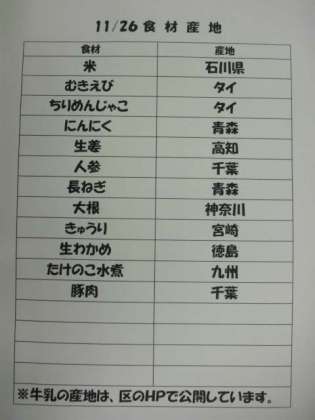 11/26食材産地
食材 産地
米 石川県
むきえび タイ
ちりめんじゃこ タイ
にんにく 青森
生姜 高知
人参 千葉
長ねぎ 青森
大根 神奈川
きゅうり 宮崎
生わかめ 徳島
たけのこ水煮 九州
豚肉 千葉
※牛乳の産地は、区のHPで公開しています。